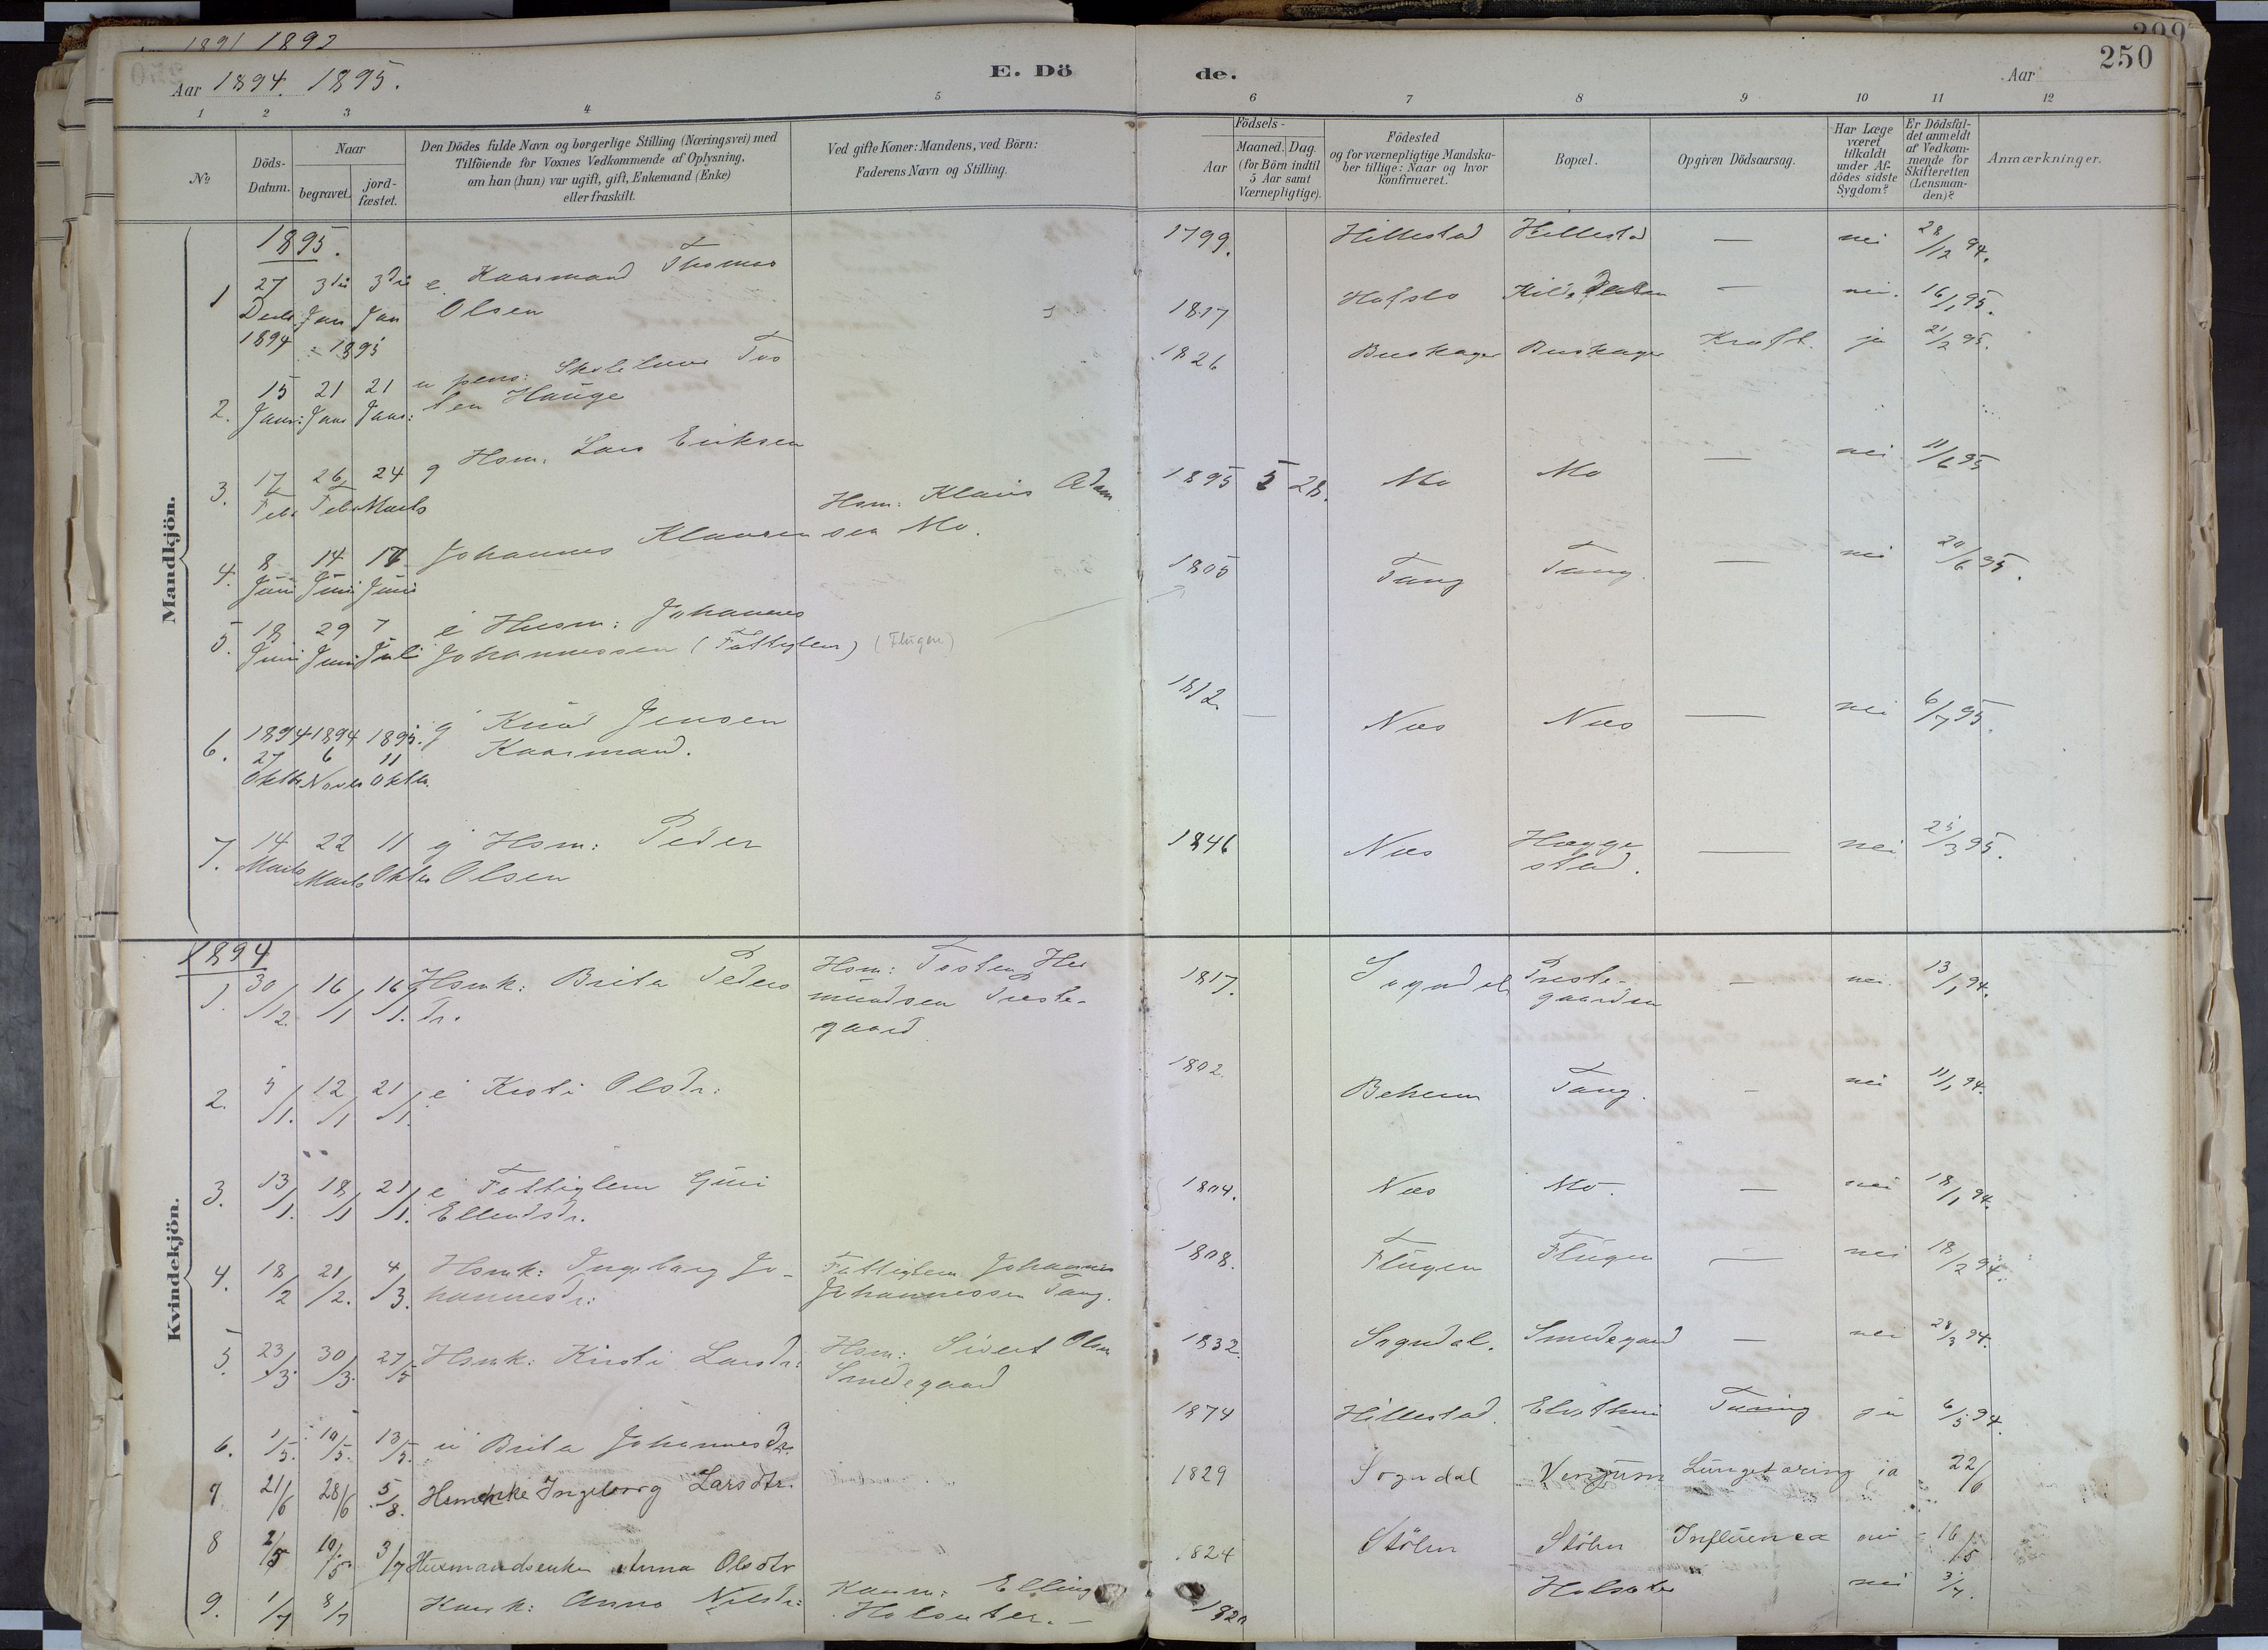 1891 1892
250
Aar 1894. 1895.
E. Dö de.
Aar
1 2 3 4 5 6 7 8 9 10 11 12
No
Döds-Datum.
Naar
begravet.
jord-fæstet.
Den Dödes fulde Navn og borgerlige Stilling (Næringsvei) med
Tilföiende for Voxnes Vedkommende af Oplysning,
om han (hun) var ugift, gift, Enkemand (Enke)
eller fraskilt.
Ved gifte Koner: Mandens, ved Börn:
Faderens Navn og Stilling.
Födsels-
Aar
Maaned. Dag.
(for Börn indtil
5 Aar samt
Værnepligtige).
Födested
og for værnepligtige Mandska-
ber tillige: Naar og hvor
konfirmeret.
Bopæl.
Opgiven Dödsaarsag.
Har Læge
været
tilkaldt
under Af-
dödes sidste
Sygdom?
Er Dödsfal-
det anmeldt
af Vedkom-
mende for
Skifteretten
(Lensman-
den)?
Anmærkninger.
Mandkjön.
1895.
1 27 Decbr 1894 3die Jan 3die Jan 1895 e. Kaarmand Thomas Olsen 1799. Hillestad Hillestad — nei 28/12 94.
2. 15 Janr: 21 Janr 21 Janr: u pens: Skolelærer Tosten Hauge 1817 Hafslo — nei. 16/1 95.
3. 17 Febr 26 Febr 24 Marts g Hsm. Lars Eriksen 1826 Buskager Buskager Kræft. ja 21/2 95.
4. 8 Juni 14 Juni 17 Juni Johannes Klaussen Hsm: Klaus Adamsen Mo. 1895 5 28. Mo Mo — nei 11/6 95
5. 18 Juni 29 Juni 7 Juli e Husm: Johannes Johannessen (Fattiglem) (Flugen) 1805 Tang Tang. — nei 20/6 95.
6. 1894 27 Oktbr 1894 6 Novbr 1895. 11 Oktbr. g Knud Jensen Kaarmand. 1812. Næs Næs — nei 6/7 95.
7. 14 Marts 22 Marts 11 Oktbr g Hsm: Peder Olsen 1846 Næs Heggestad. — nei 25/3 95.
Kvindekjön.
1894
1. 30/12. 16/1 16/1. Hsmk: Brita Pedersdr. Hsm: Tosten Hermundsen Prestegaard 1817. Sogndal Prestegaarden — nei. 13/1 94.
2. 5/1. 12/1 21/1. e Kristi Olsdr: 1802. Beheim Tang. — nei 11/1 94.
3. 13/1. 18/1 21/1. e Fattiglem Guri Ellendsdr. 1804. Næs Mo. — nei 18/1 94.
4. 18/2 21/2. 4/3. Hsmk: Ingeborg Johannesdr: Fattiglem Johannes Johannessen Tang. 1808. Flugen Flugen — nei 18/2 94.
5. 23/3. 30/3. 27/5 Hsmk: Kristi Larsdr: Hsm: Sivert Olsen Smedegaard 1832. Sogndal. Smedegaard — nei 28/3 94.
6. 1/5. 10/5. 13/5. u Brita Johannesdr. 1874 Hillestad. Tæring ja 6/5 94.
7 21/6 28/6 5/8. Hsmenke Ingeborg Larsdtr. 1829 Sogndal Venjum Lungetæring ja 22/6
8 2/5 10/5 3/7 Husmandsenke Anna Olsdtr 1824 Stölen Stölen Influenza nei 16/5
9. 1/7 8/7 Kaark: Anna Nilsdr: Kaarm: Elling Holsæter. — 1820 Holsæter " nei 3/7.